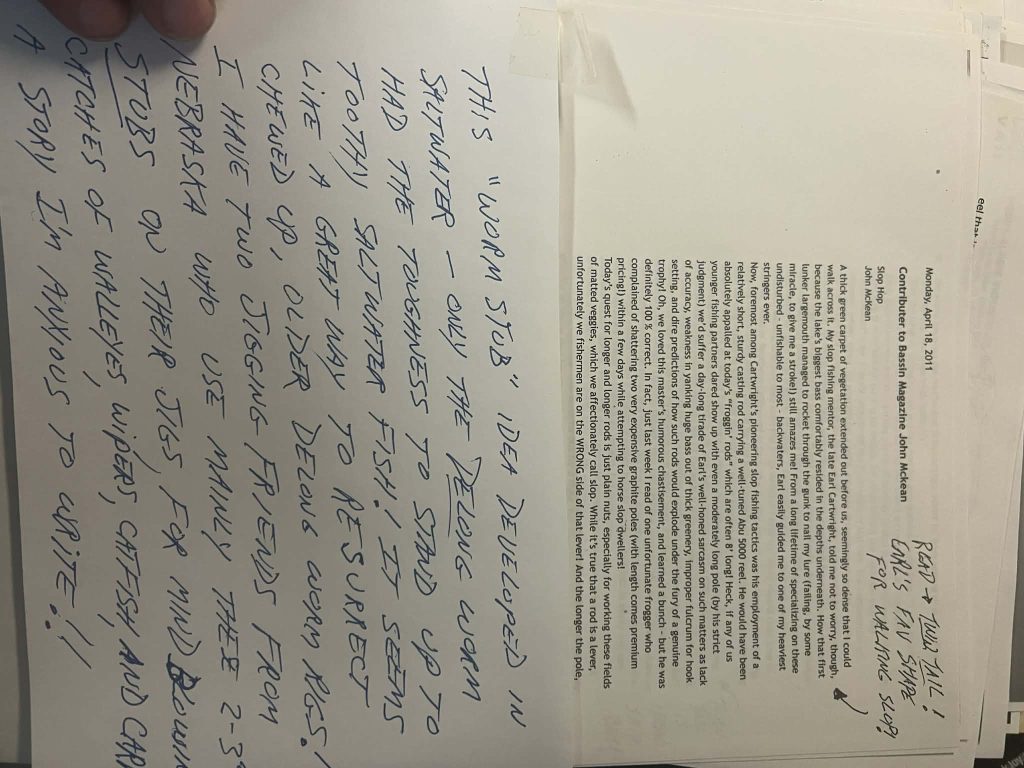 THIS "WORM STUB" IDEA DEVELOPED IN
SALTWATER - ONLY THE DELONG WORM
HAD THE TOUGHNESS TO STAND UP TO
TOOTHY SALTWATER FISH! IT SEEMS
LIKE A GREAT WAY TO RESURRECT
CHEWED UP, OLDER DELONG WORM RIGS!
I HAVE TWO JIGGING FRIENDS FROM
NEBRASKA WHO USE MAINLY THEE 2-3"
STUBS ON THEIR JIGS, FOR MIND BLOWIN
CATCHES OF WALLEYES, WIPERS, CATFISH, AND CARP
A STORY I'M ANXIOUS TO WRITE!!
eel that
READ → TWIN TAIL!
EARL'S FAV SHAPE
FOR WALKING SLOP!
Monday, April 18, 2011
Contributer to Bassin Magazine John Mckean
Slop Hop
John McKean
A thick green carpet of vegetation extended out before us, seemingly so dense that I could
walk across it. My slop fishing mentor, the late Earl Cartwright, told me not to worry, though,
because the lake's biggest bass comfortably resided in the depths underneath. How that first
lunker largemouth managed to rocket through the gunk to nail my lure (failing, by some
miracle, to give me a stroke!) still amazes me! From a long lifetime of specializing on these
undisturbed - unfishable to most - backwaters, Earl easily guided me to one of my heaviest
stringers ever.
Now, foremost among Cartwright's pioneering slop fishing tactics was his employment of a
relatively short, sturdy casting rod carrying a well-tuned Abu 5000 reel. He would have been
absolutely appalled at today's "froggin' rods" which are often 8' long! Heck, if any of us
younger fishing partners dared show up with even a moderately long pole (by his strict
judgment) we'd suffer a day-long tirade of Earl's well-honed sarcasm on such matters as lack
of accuracy, weakness in yanking huge bass out of thick greenery, improper fulcrum for hook
setting, and dire predictions of how such rods would explode under the fury of a genuine
trophy! Oh, we loved this master's humorous chastisement, and learned a bunch - but he was
definitely 100 % correct. In fact, just last week I read of one unfortunate frogger who
complained of shattering two very expensive graphite poles (with length comes premium
pricing!) within a few days while attempting to horse slop dwellers!
Today's quest for longer and longer rods is just plain nuts, especially for working these fields
of matted veggies, which we affectionately call slop. While it's true that a rod is a lever,
unfortunately we fishermen are on the WRONG side of that lever! And the longer the pole,